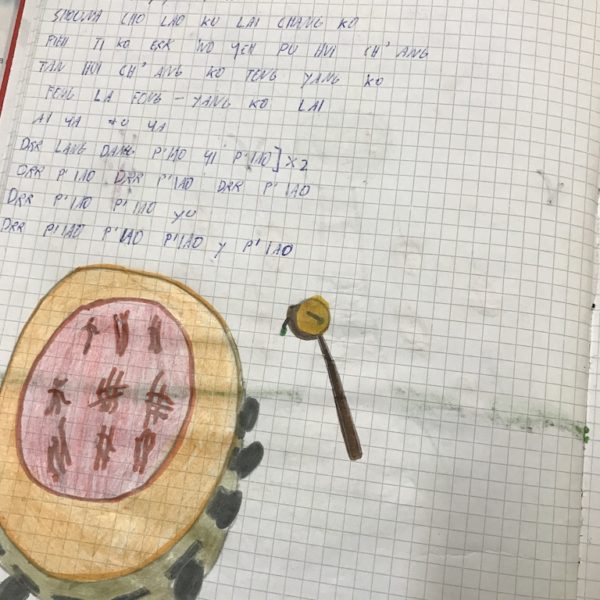 SHOUNA CHO LAO KU LAI CHANG KO
PIEH TI KO ERR WO YEH PU HUI CH' ANG
TAN HUI CH' ANG KO FENG YANG KO
FENG LA FENG - YANG KO LAI
AI YA YA
DRR LANG DANG P'IAO YI P'IAO] X2
DRR P'IAO DRR P'IAO DRR P'IAO
DRR P'IAO P'IAO YU
DRR P'IAO P'IAO P'IAO Y P'IAO